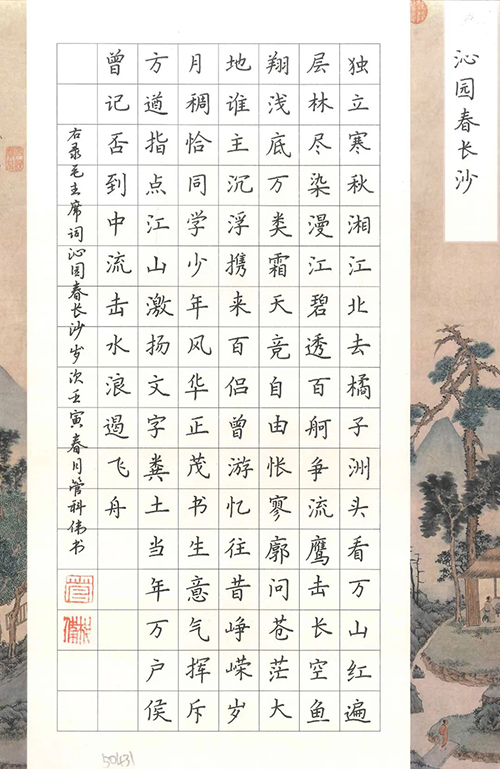 沁园春长沙
独立寒秋湘江北去橘子洲头看万山红遍
层林尽染漫江碧透百舸争流鹰击长空鱼
翔浅底万类霜天竞自由怅寥廓问苍茫大
地谁主沉浮携来百侣曾游忆往昔峥嵘岁
月稠恰同学少年风华正茂书生意气挥斥
方遒指点江山激扬文字粪土当年万户侯
曾记否到中流击水浪遏飞舟
右录毛主席词沁园春长沙岁次壬寅春月管科伟书
50431